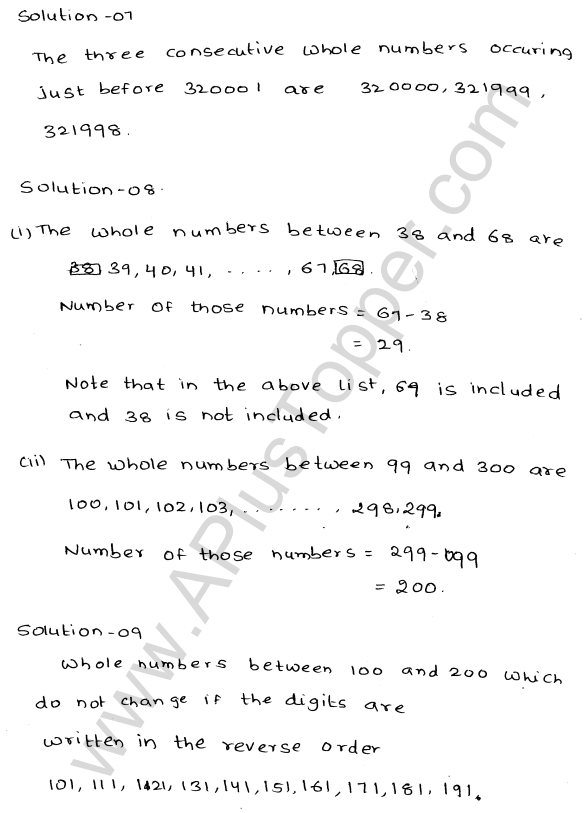 Solution-07
The three consecutive whole numbers occuring
just before 320001 are 320000, 321999,
321998.
Solution-08.
(i) The whole numbers between 38 and 68 are
38 39, 40, 41, ....., 67, 68.
Number of those numbers = 67-38
= 29.
Note that in the above list, 69 is included
and 38 is not included.
(ii) The whole numbers between 99 and 300 are
100, 101, 102, 103, ........, 298, 299.
Number of those numbers = 299-099
= 200.
Solution-09
Whole numbers between 100 and 200 which
do not change if the digits are
written in the reverse order
101, 111, 121, 131, 141, 151, 161, 171, 181, 191.
www.APlusTopper.com